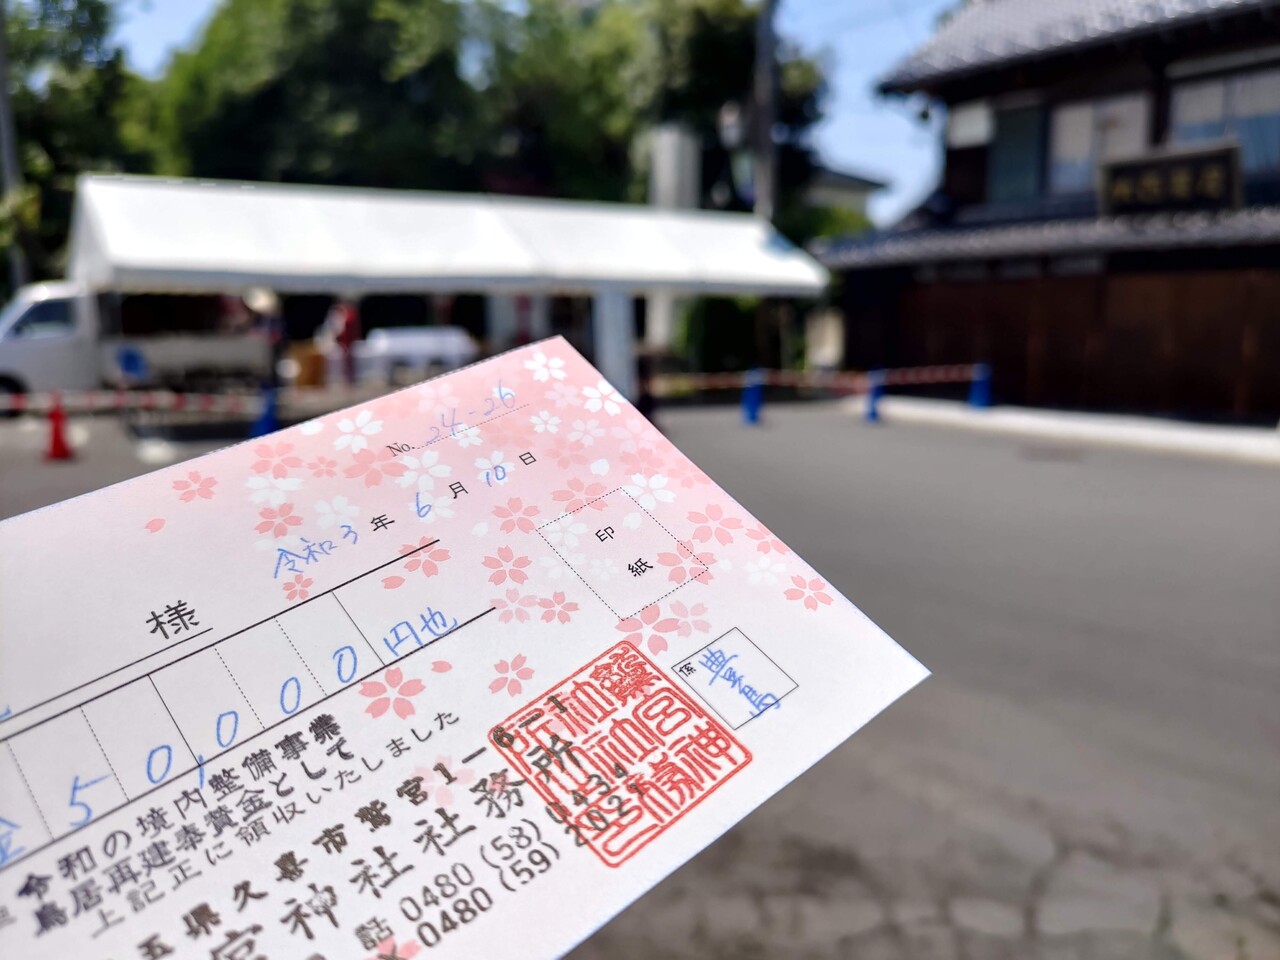 No. 24-26
令和3年6月10日
印紙
様
係 豊島
金50,000円也
令和の境内整備事業
鳥居再建奉賛金として
上記正に領収いたしました
県久喜市鷲宮1-6-1
宮神社社務所
話 0480(58)0434
0480(59)2021